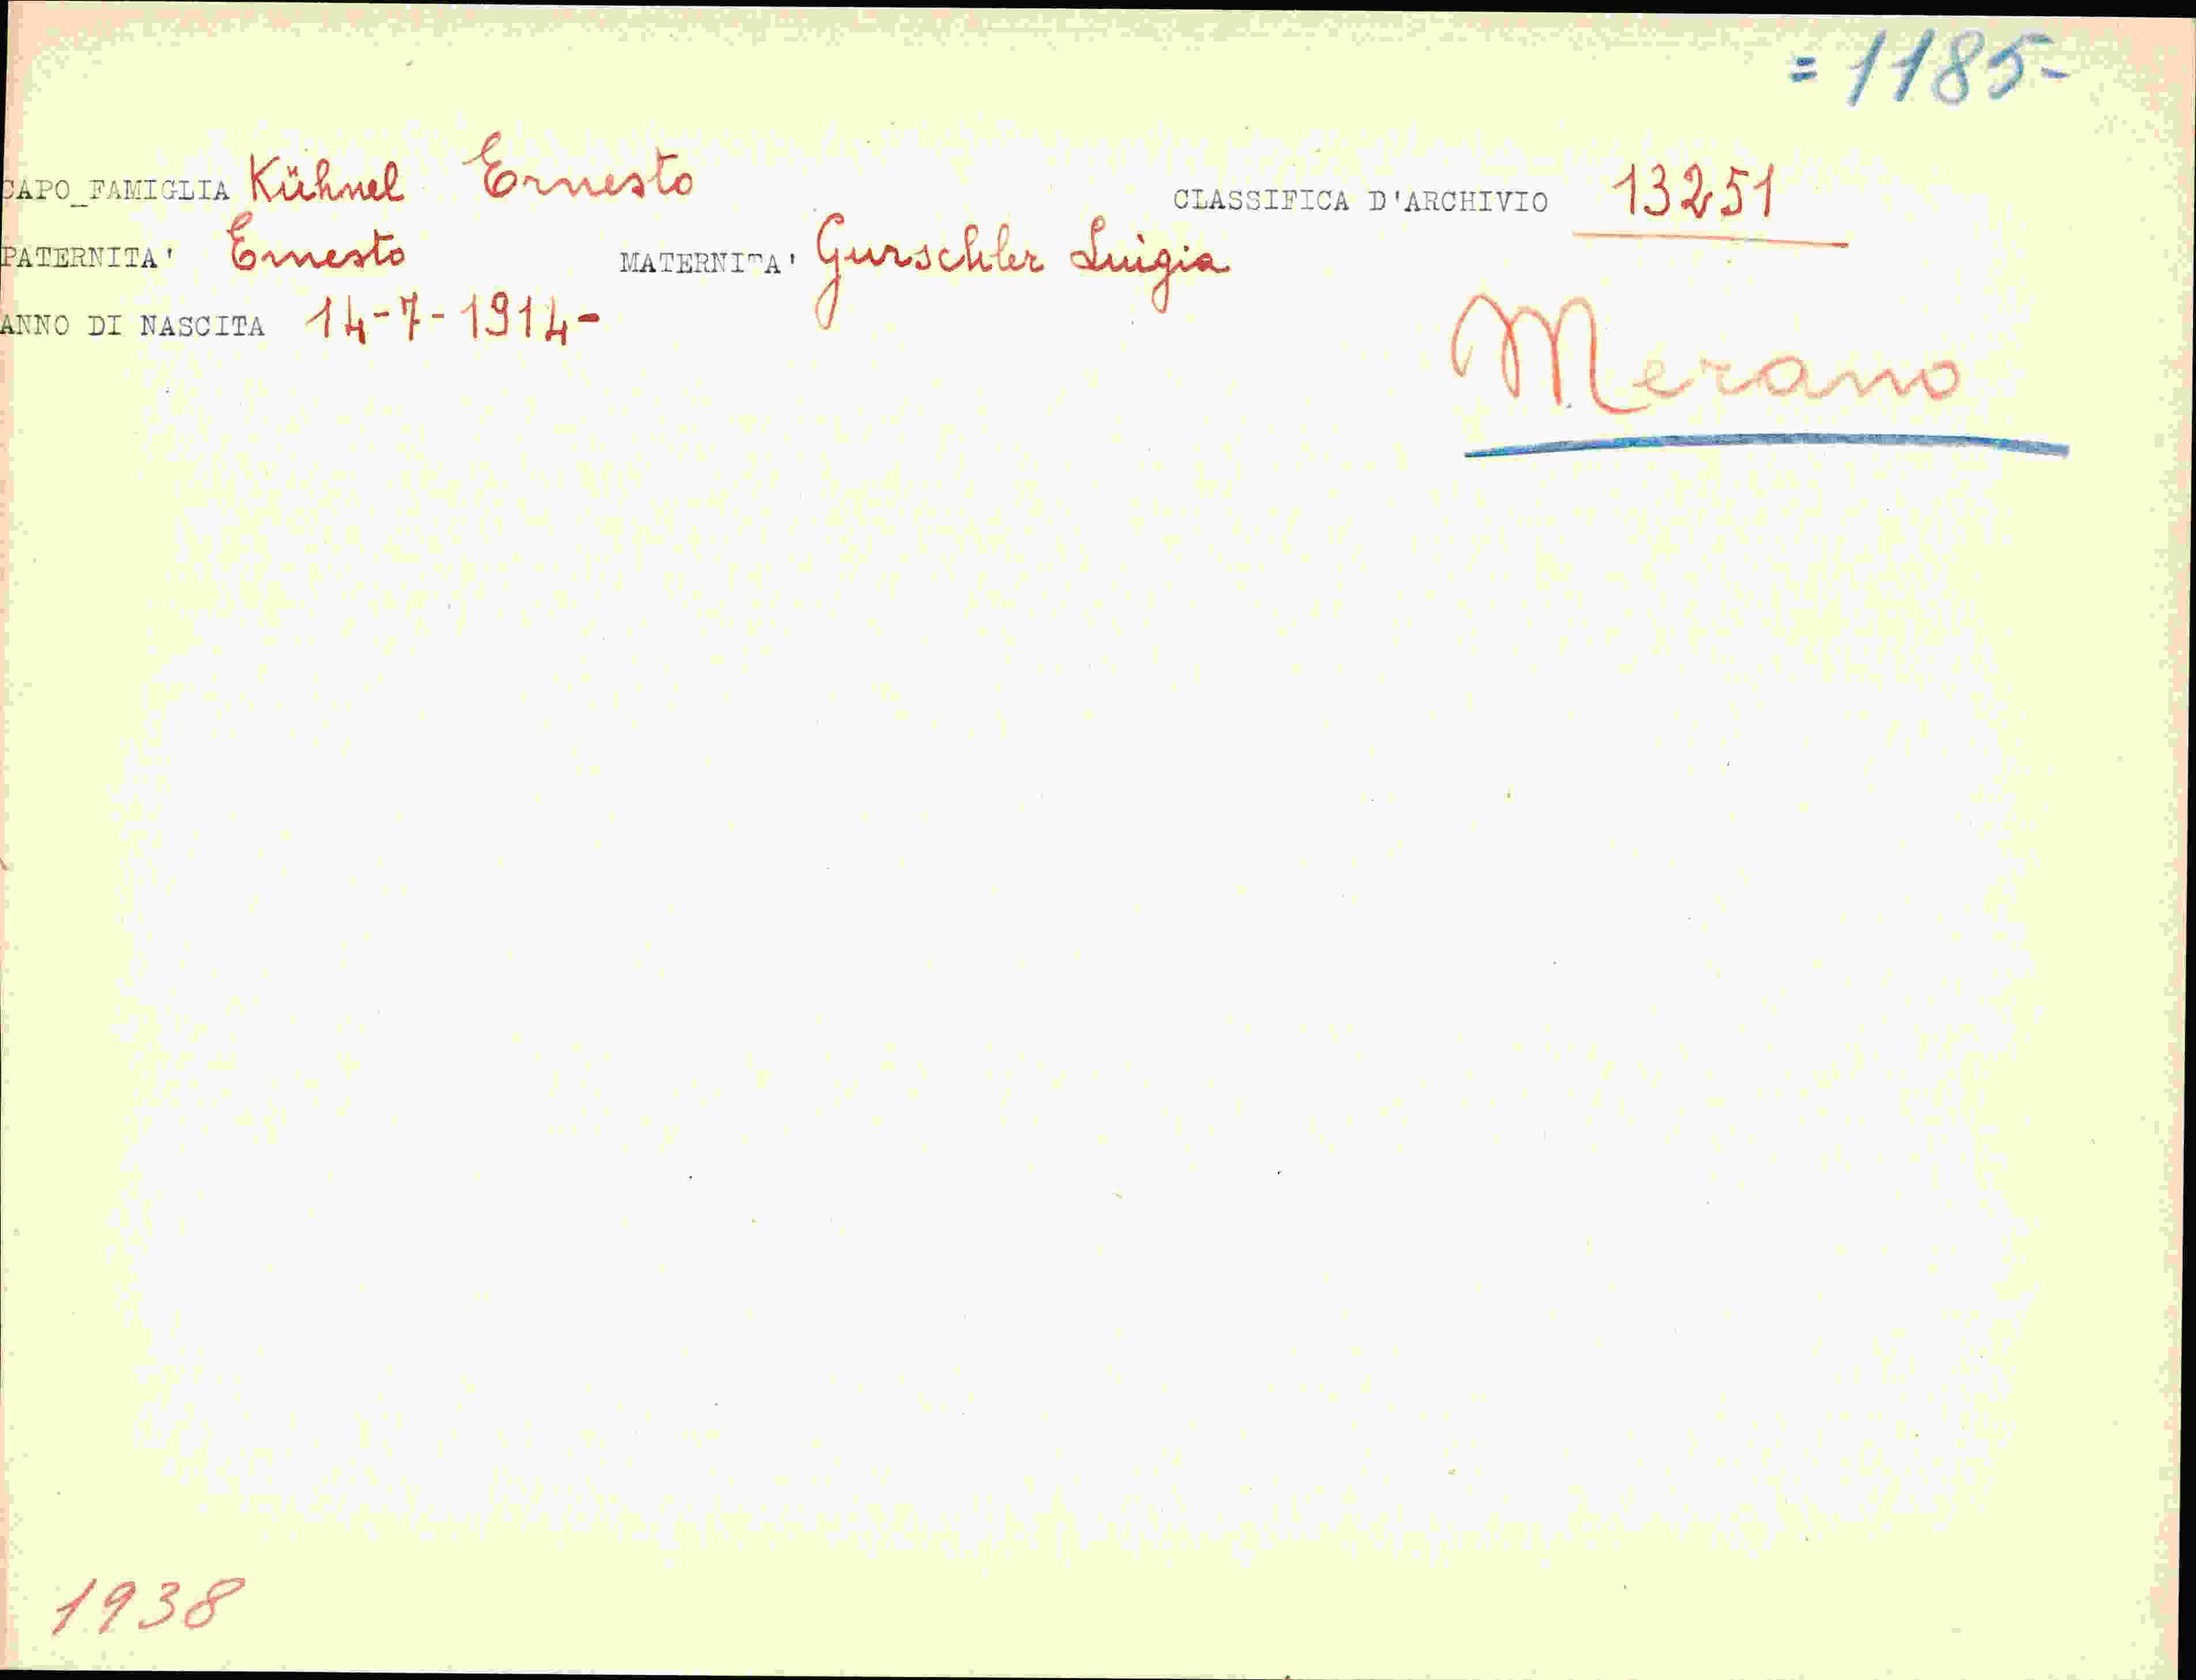 =1185-
CAPO_FAMIGLIA Kühnel Ernesto CLASSIFICA D'ARCHIVIO 13251
PATERNITA' Ernesto MATERNITA' Gurschler Luigia
ANNO DI NASCITA 14-7-1914-
Merano
1938